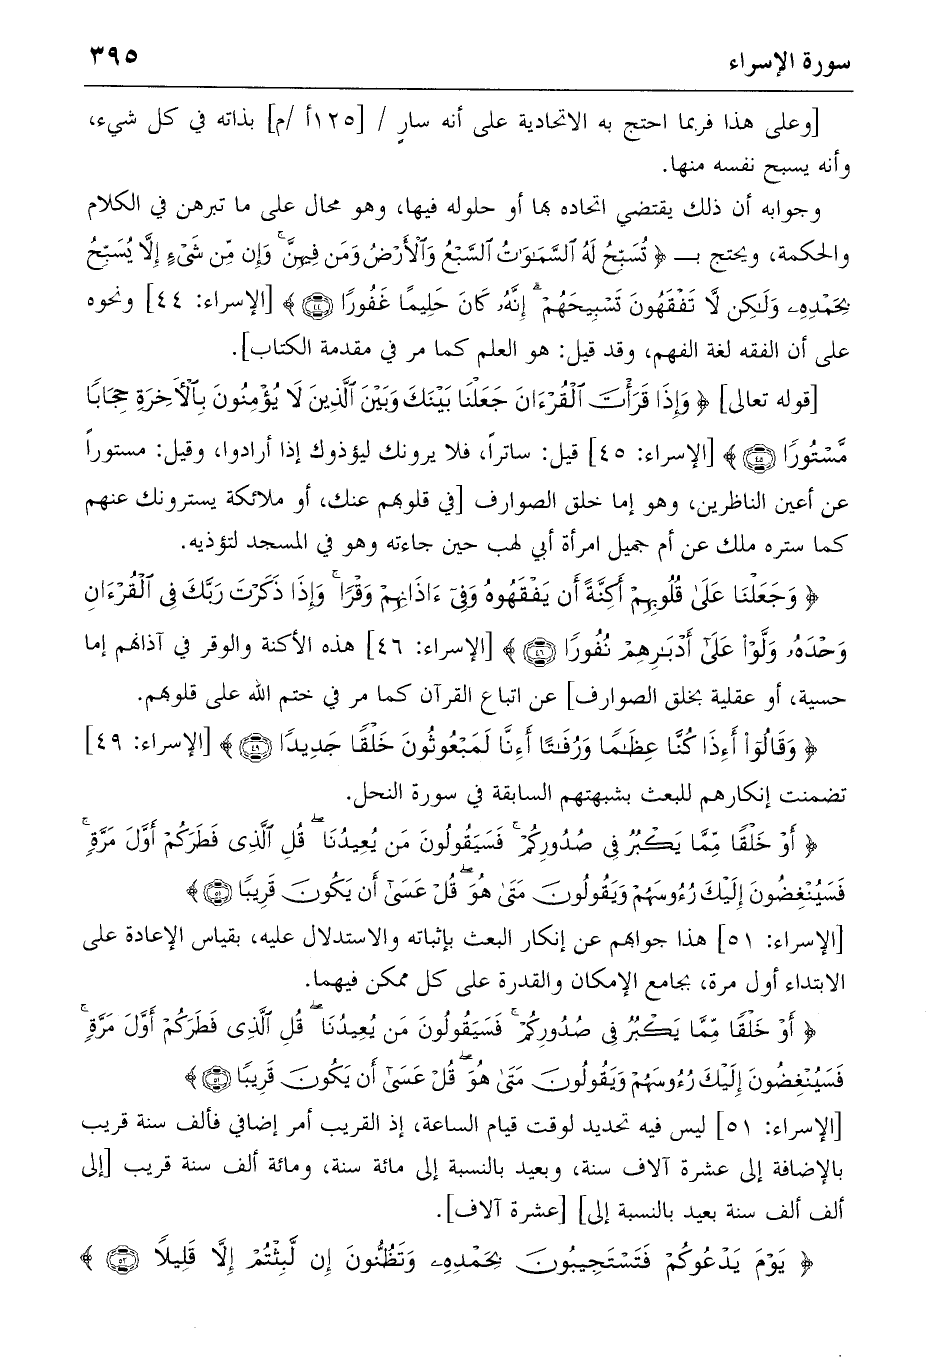 سورة الإسراء ٣٩٥
[وعلى هذا فربما احتج به الاتحادية على أنه سارٍ / [١٢٥أ /م] بذاته في كل شيء،
وأنه يسبح نفسه منها.
وجوابه أن ذلك يقتضي اتحاده بها أو حلوله فيها، وهو محال على ما تبرهن في الكلام
والحكمة، ويحتج بـ ﴿ تُسَبِّحُ لَهُ ٱلسَّمَٰوَٰتُ ٱلسَّبْعُ وَٱلْأَرْضُ وَمَن فِيهِنَّ ۚ وَإِن مِّن شَىْءٍ إِلَّا يُسَبِّحُ
بِحَمْدِهِۦ وَلَٰكِن لَّا تَفْقَهُونَ تَسْبِيحَهُمْ ۗ إِنَّهُۥ كَانَ حَلِيمًا غَفُورًا ٤٤ ﴾ [الإسراء: ٤٤] ونحوه
على أن الفقه لغة الفهم، وقد قيل: هو العلم كما مر في مقدمة الكتاب].
[قوله تعالى] ﴿ وَإِذَا قَرَأْتَ ٱلْقُرْءَانَ جَعَلْنَا بَيْنَكَ وَبَيْنَ ٱلَّذِينَ لَا يُؤْمِنُونَ بِٱلْأَخِرَةِ حِجَابًا
مَّسْتُورًا ٤٥ ﴾ [الإسراء: ٤٥] قيل: ساتراً، فلا يرونك ليؤذوك إذا أرادوا، وقيل: مستوراً
عن أعين الناظرين، وهو إما خلق الصوارف [في قلوبهم عنك، أو ملائكة يسترونك عنهم
كما ستره ملك عن أم جميل امرأة أبي لهب حين جاءته وهو في المسجد لتؤذيه.
﴿ وَجَعَلْنَا عَلَىٰ قُلُوبِهِمْ أَكِنَّةً أَن يَفْقَهُوهُ وَفِىٓ ءَاذَانِهِمْ وَقْرًا ۚ وَإِذَا ذَكَرْتَ رَبَّكَ فِى ٱلْقُرْءَانِ
وَحْدَهُۥ وَلَّوْا۟ عَلَىٰٓ أَدْبَٰرِهِمْ نُفُورًا ٤٦ ﴾ [الإسراء: ٤٦] هذه الأكنة والوقر في آذانهم إما
حسية، أو عقلية بخلق الصوارف] عن اتباع القرآن كما مر في ختم الله على قلوبهم.
﴿ وَقَالُوٓا۟ أَءِذَا كُنَّا عِظَٰمًا وَرُفَٰتًا أَءِنَّا لَمَبْعُوثُونَ خَلْقًا جَدِيدًا ٤٩ ﴾ [الإسراء: ٤٩]
تضمنت إنكارهم للبعث بشبهتهم السابقة في سورة النحل.
﴿ أَوْ خَلْقًا مِّمَّا يَكْبُرُ فِى صُدُورِكُمْ ۚ فَسَيَقُولُونَ مَن يُعِيدُنَا ۖ قُلِ ٱلَّذِى فَطَرَكُمْ أَوَّلَ مَرَّةٍ ۚ
فَسَيُنْغِضُونَ إِلَيْكَ رُءُوسَهُمْ وَيَقُولُونَ مَتَىٰ هُوَ ۖ قُلْ عَسَىٰٓ أَن يَكُونَ قَرِيبًا ٥١ ﴾
[الإسراء: ٥١] هذا جوابهم عن إنكار البعث بإثباته والاستدلال عليه، بقياس الإعادة على
الابتداء أول مرة، بجامع الإمكان والقدرة على كل ممكن فيهما.
﴿ أَوْ خَلْقًا مِّمَّا يَكْبُرُ فِى صُدُورِكُمْ ۚ فَسَيَقُولُونَ مَن يُعِيدُنَا ۖ قُلِ ٱلَّذِى فَطَرَكُمْ أَوَّلَ مَرَّةٍ ۚ
فَسَيُنْغِضُونَ إِلَيْكَ رُءُوسَهُمْ وَيَقُولُونَ مَتَىٰ هُوَ ۖ قُلْ عَسَىٰٓ أَن يَكُونَ قَرِيبًا ٥١ ﴾
[الإسراء: ٥١] ليس فيه تحديد لوقت قيام الساعة، إذ القريب أمر إضافي فألف سنة قريب
بالإضافة إلى عشرة آلاف سنة، وبعيد بالنسبة إلى مائة سنة، ومائة ألف سنة قريب [إلى
ألف ألف سنة بعيد بالنسبة إلى] [عشرة آلاف].
﴿ يَوْمَ يَدْعُوكُمْ فَتَسْتَجِيبُونَ بِحَمْدِهِۦ وَتَظُنُّونَ إِن لَّبِثْتُمْ إِلَّا قَلِيلًا ٥٢ ﴾